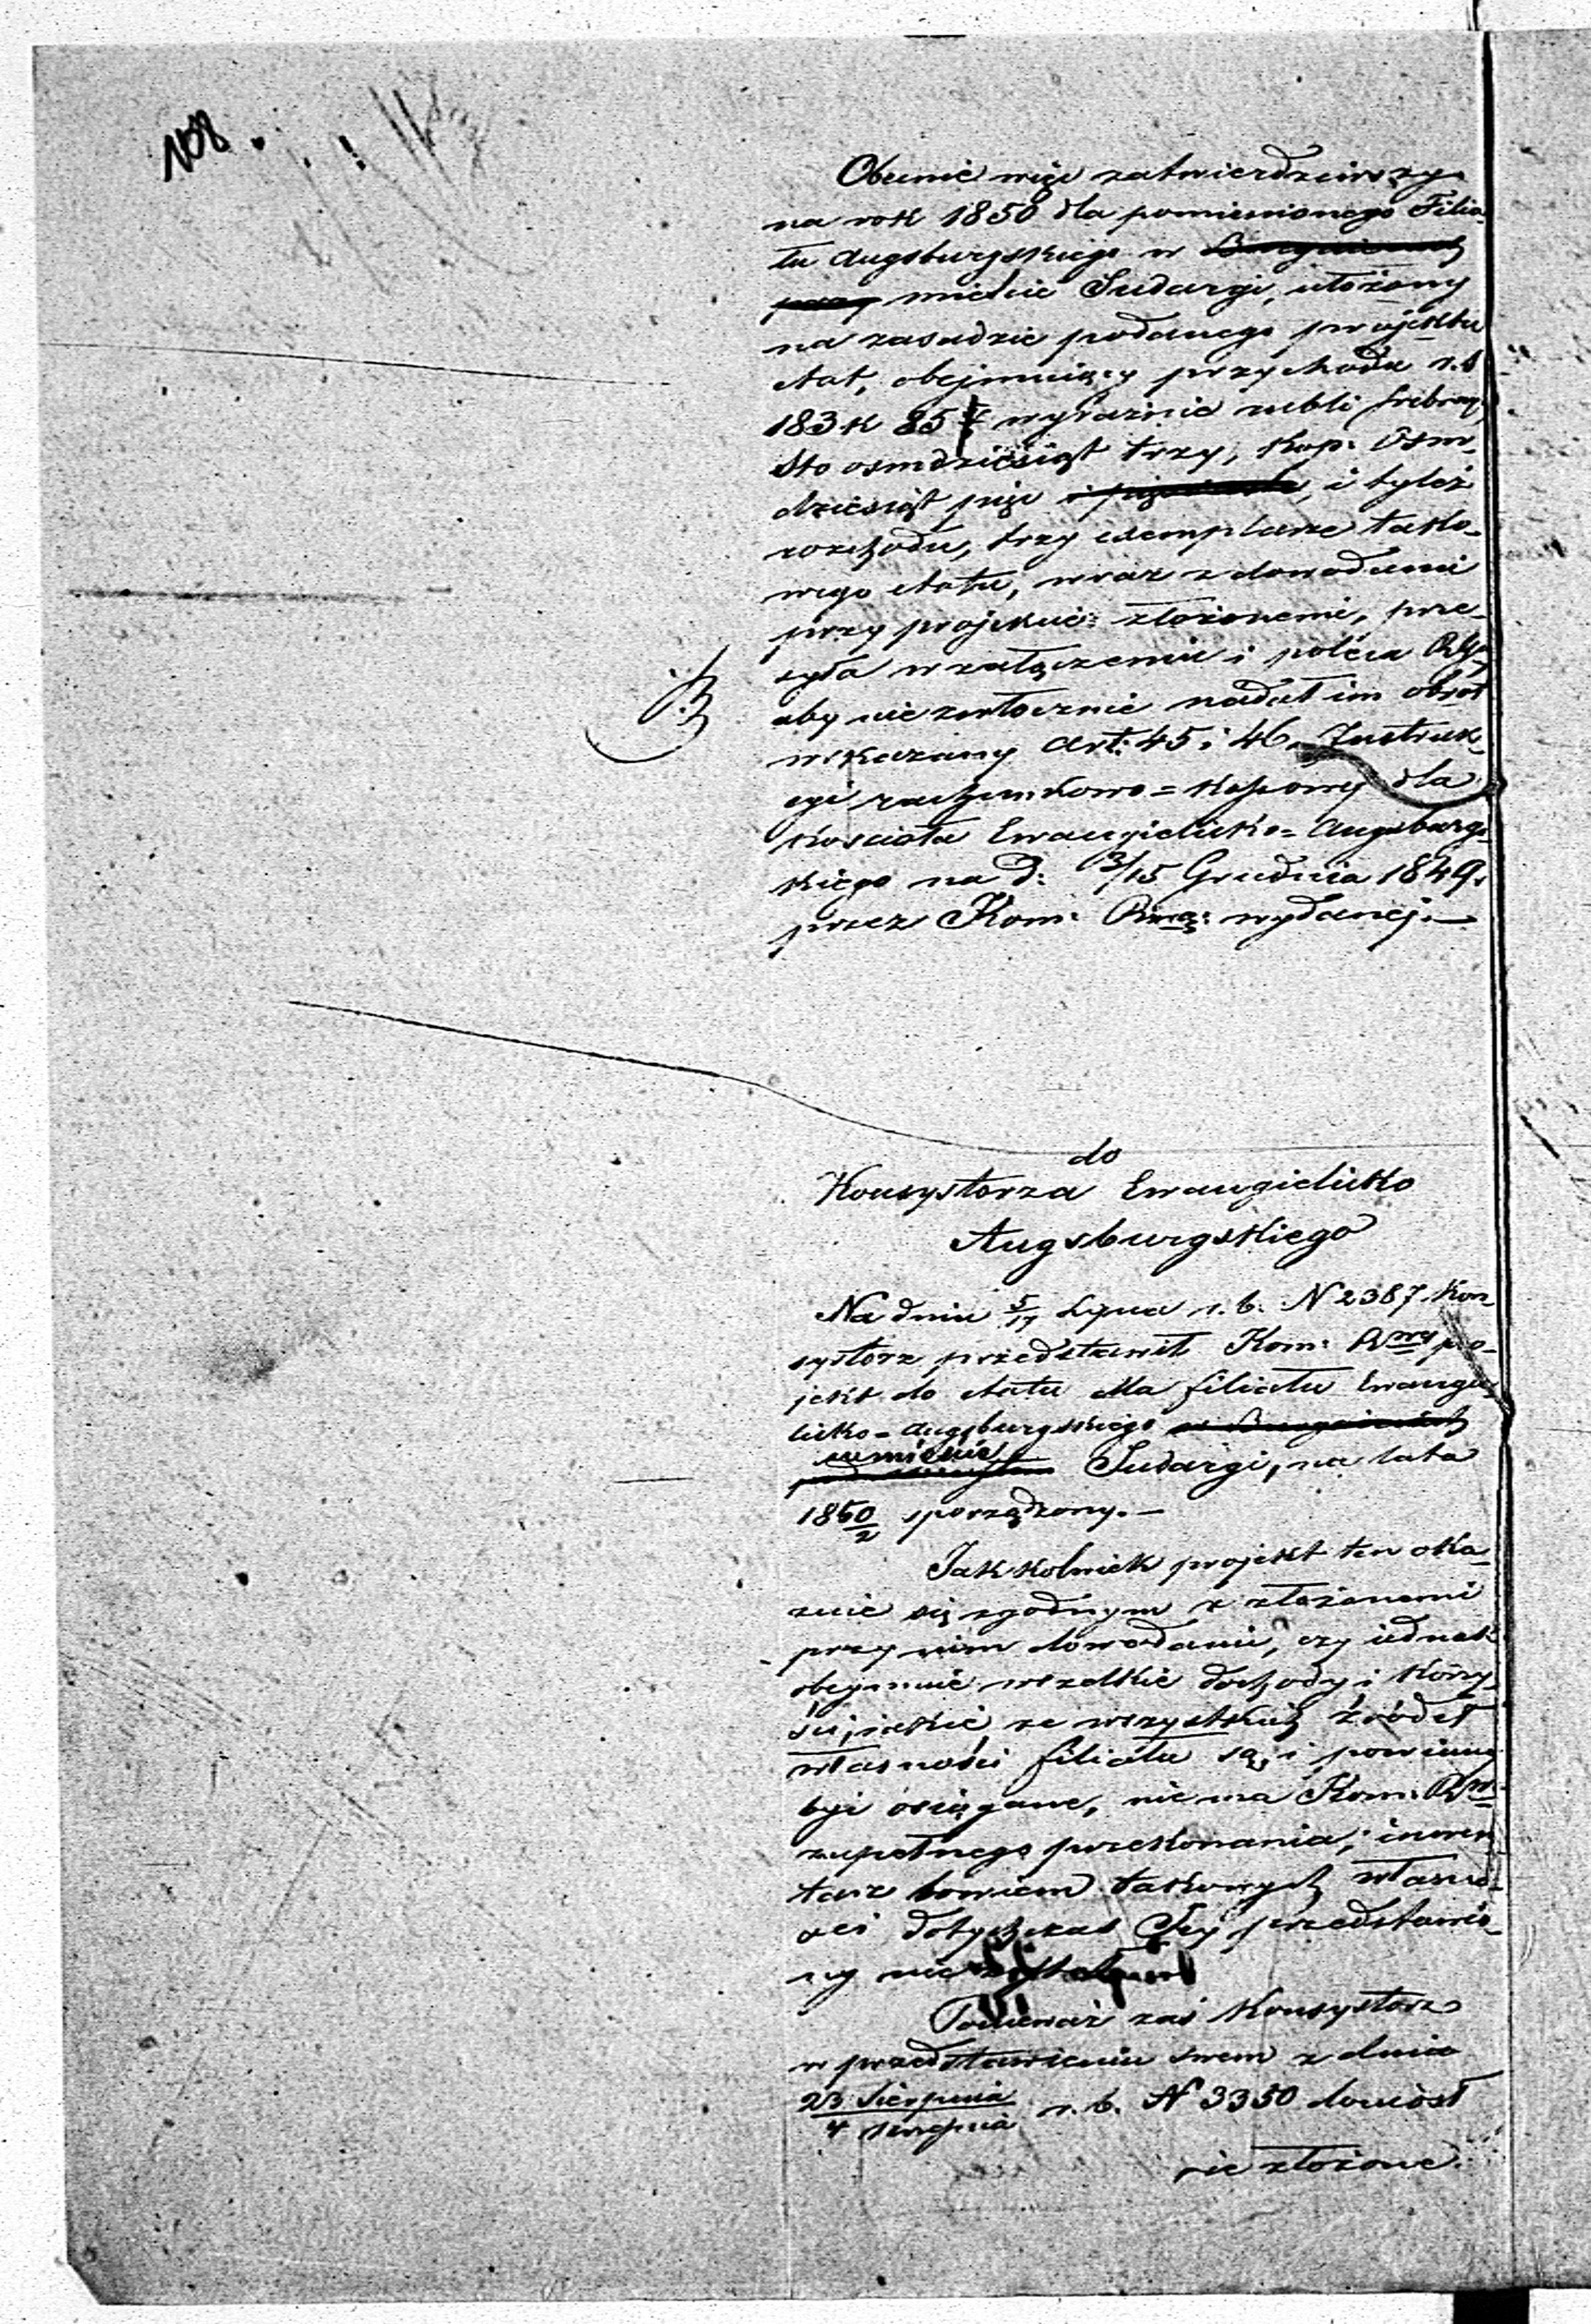 108.
Obecnie więc zatwierdziwszy
na rok 1850 dla pomienionego Filia-
łu Augsburgskiego w
mieście Sudargi, ułożony
na zasadzie podanego projektu
etat, obejmujący przychodu r.s
183 k 85 wyraźnie rubli srebrny
Sto osmdziesiąt trzy, kop: Ośm-
dziesiąt pięć i tyleż
rozchodu, trzy exemplarze tako-
wego etatu, wraz z dowodami
przy projekcie złożonemi, prze-
syła w załączeniu i poleca
aby niezwłocznie nadał im obrót
wskazany Art: 45 i 46 Instruk-
cyi rachunkowo = kassowej dla
Kościoła Ewangielicko = Augsburgs-
kiego na d: 3/15 Grudnia 1849.
przez Kom: Rzną: wydanej.—
do
Konsystorza Ewangielicko
Augsburgskiego
Na dniu 5/17 Lipca r. b. N 2387 Kon-
systorz przedstawił Kom: Rzwy pro-
jekt do etatu dla filiału Ewangie-
licko = Augsburgskiego
w mieście
Sudargi, na lata
1850/2 sporządzony.—
Jakkolwiek projekt ten oka-
zuie się zgodnym z złożonemi
przy nim dowodami, czy iednak
obeymuie wszelkie dochody i korzy-
ści, iakie ze wszystkich źródeł
własności filiału są, i powinny
być osiągane, nie ma Kom: Rz
zupełnego przekonania; inwen-
tarz bowiem takowych własno-
ści dotychczas Jey przedstawio-
ny nie został
Ponieważ zaś Konsystorz
w przedstawieniu swem z dnia
23 Sierpnia
4 r. b. N 3350 doniosł
nie złożone.